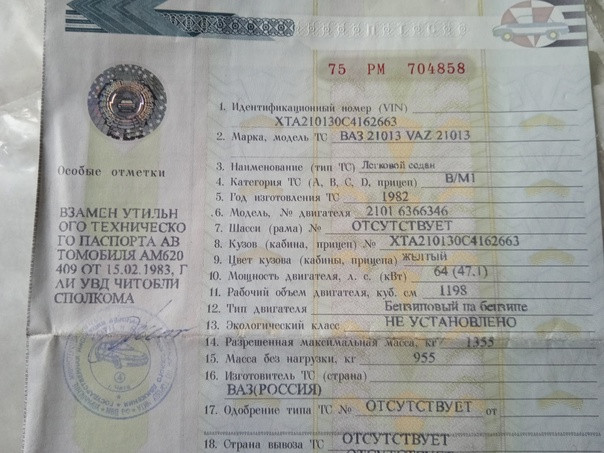 75 РМ 704858
1. Идентификационный номер (VIN)
XTA210130C4162663
2. Марка, модель ТС ВАЗ 21013 VAZ 21013
3. Наименование (тип ТС) Легковой седан
4. Категория ТС (А, В, С, D, прицеп) В/М1
5. Год изготовления ТС 1982
6. Модель, № двигателя 2101 6366346
7. Шасси (рама) № ОТСУТСТВУЕТ
8. Кузов (кабина, прицеп) № XTA210130C4162663
9. Цвет кузова (кабины, прицепа) ЖЕЛТЫЙ
10. Мощность двигателя, л. с. (кВт) 64 (47.1)
11. Рабочий объем двигателя, куб. см 1198
12. Тип двигателя Бензиновый на бензине
13. Экологический класс НЕ УСТАНОВЛЕНО
14. Разрешенная максимальная масса, кг 1355
15. Масса без нагрузки, кг 955
16. Изготовитель ТС (страна)
ВАЗ(РОССИЯ)
17. Одобрение типа ТС № ОТСУТСТВУЕТ от
18. Страна вывоза ТС ОТСУТСТВУЕТ
Особые отметки
ВЗАМЕН УТИЛЬН
ОГО ТЕХНИЧЕСКО
ГО ПАСПОРТА АВ
ТОМОБИЛЯ АМ620
409 ОТ 15.02.1983, Г
АИ УВД ЧИТОБЛИ
СПОЛКОМА